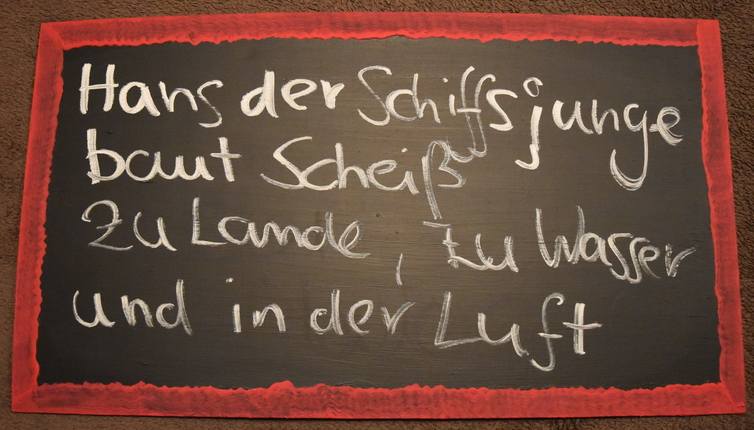 Hans der Schiffsjunge
baut Scheiß
zu Lande, zu Wasser
und in der Luft